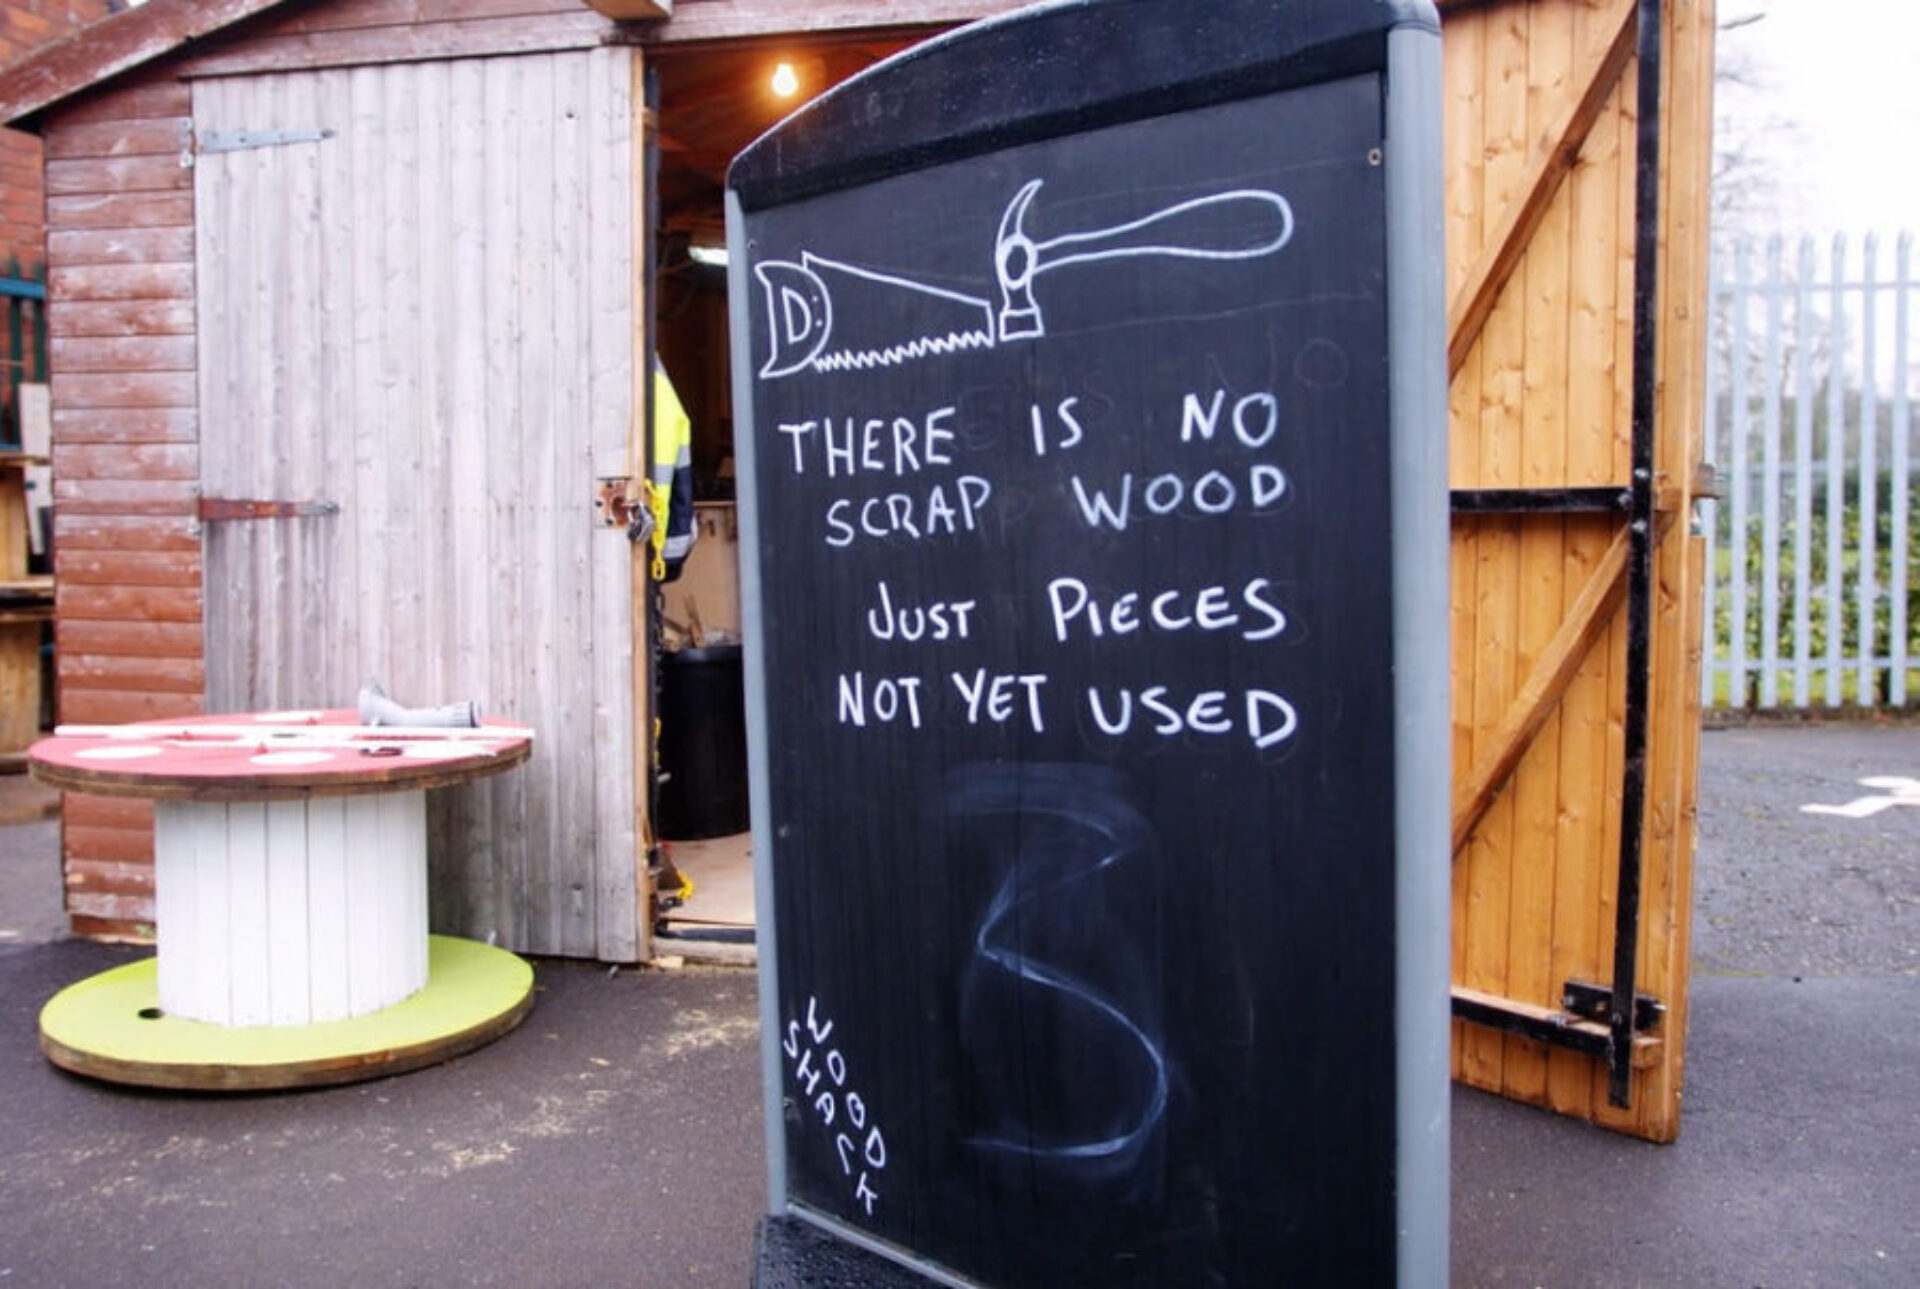 THERE IS NO
SCRAP WOOD
JUST PIECES
NOT YET USED
WOOD
SHACK